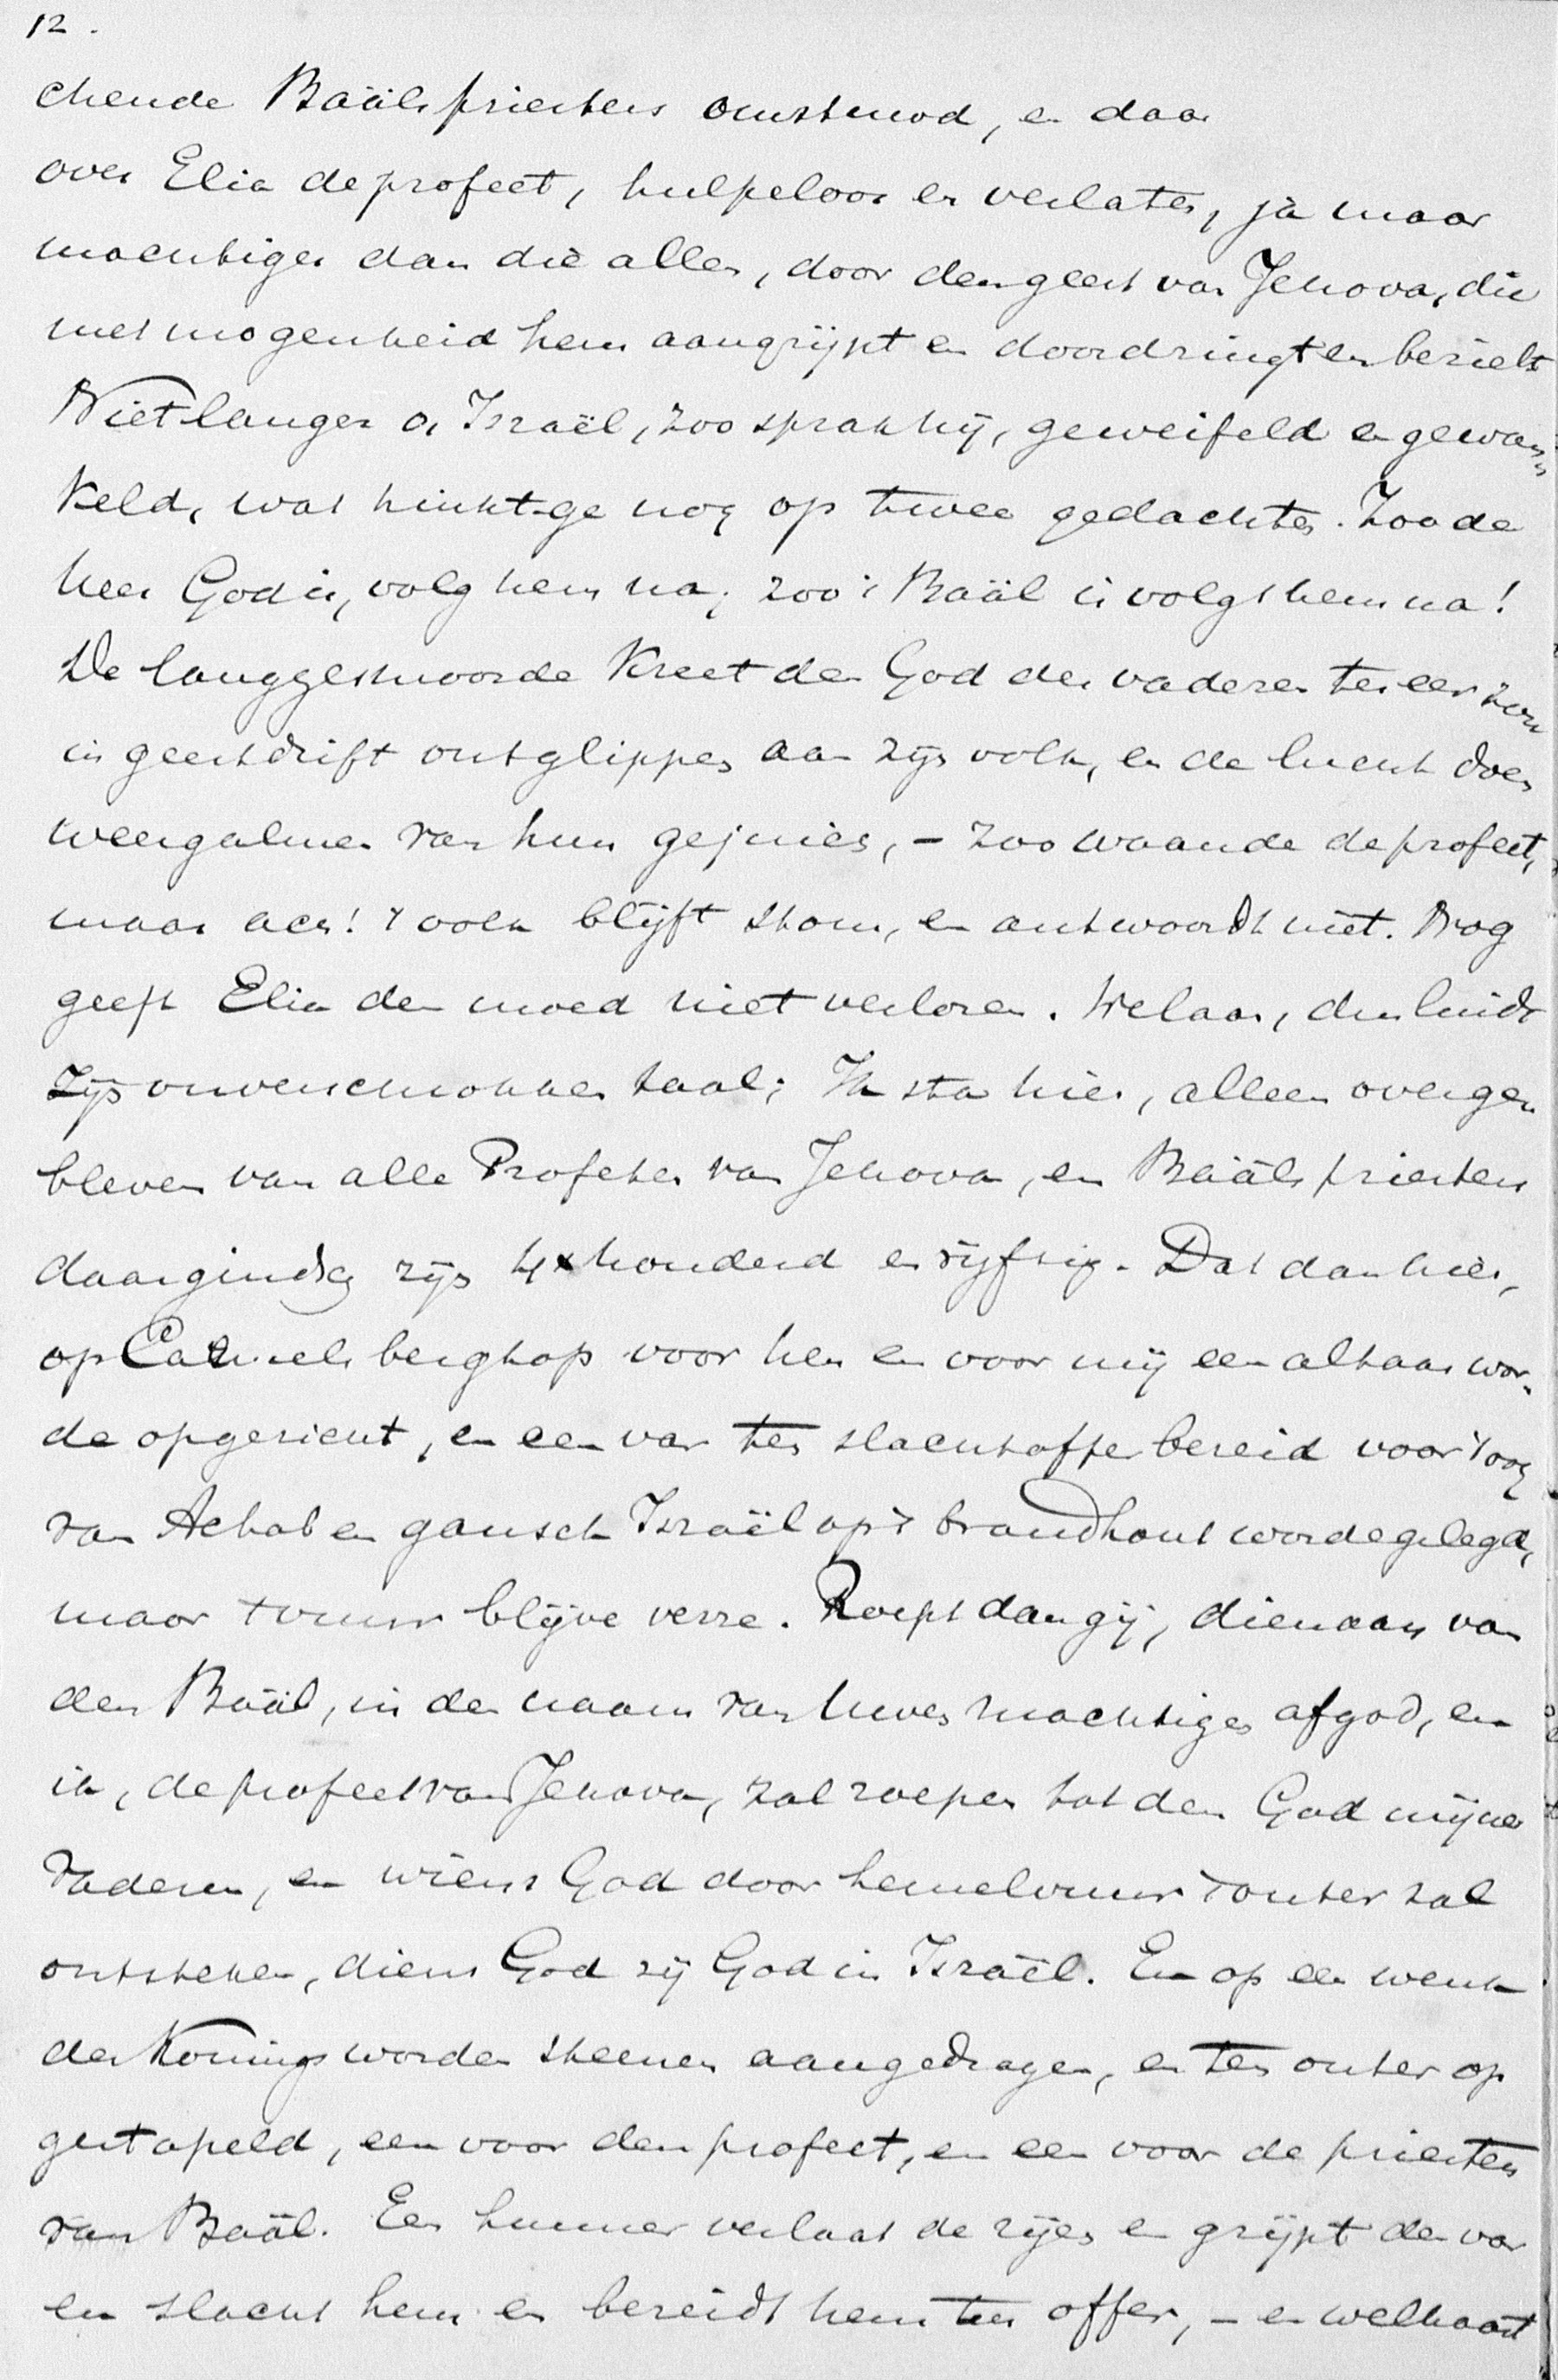 12.
chende Baälspriesters omstuwd, en daar
over Elia de profeet, hulpeloos en verlaten, ja maar
machtiger dan die allen, door den geest van Jehova, die
met mogenheid hem aangrijpt en doordringt en bezielt
Niet langer o, Israël, zoo sprak hij, geweifeld en gewan„
keld, wat hinkt-ge nog op twee gedachten. Zoo de
heer God is, volg hem na; zoo 't Baäl is volgt hem na!
De langgesmoorde kreet den God der vaderen ter eer zou
in geestdrift ontglippen aan zijn volk, en de lucht doen
weergalmen van hun gejuich, – zoo waande de profeet,
maar ach! 't volk blijft stom, en antwoordt niet. Nog
geeft Elia den moed niet verloren. Welaan, dus luidt
zijn onverschrokken taal; Ik sta hier, alleen overge„
bleven van alle Profeten van Jehova, en Baäls priesters
daarginds zijn 4 honderd en vijftig. Dat dan hier,
op Carmels bergtop voor hen en voor mij een altaar wor„
de opgericht, en een var ten slachtoffer bereid voor 't oog
van Achab en gansch Israël op 't brandhout worde gelegd,
maar 't vuur blijve verre. Roept dan gij, dienaars van
den Baäl, in den naam van Uwen machtigen afgod, en
ik, de profeet van Jehova, zal roepen tot den God mijner
Vaderen, en wiens God door hemelvuur 't outer zal
ontsteken, diens God zij God in Israël. En op een wenk
des Konings worden steenen aangedragen, en ten outer op
gestapeld, een voor den profeet, en een voor de priesters
van Baäl. Een hunner verlaat de rijen en grijpt den var
en slacht hem en bereidt hem ten offer, – en welhaast